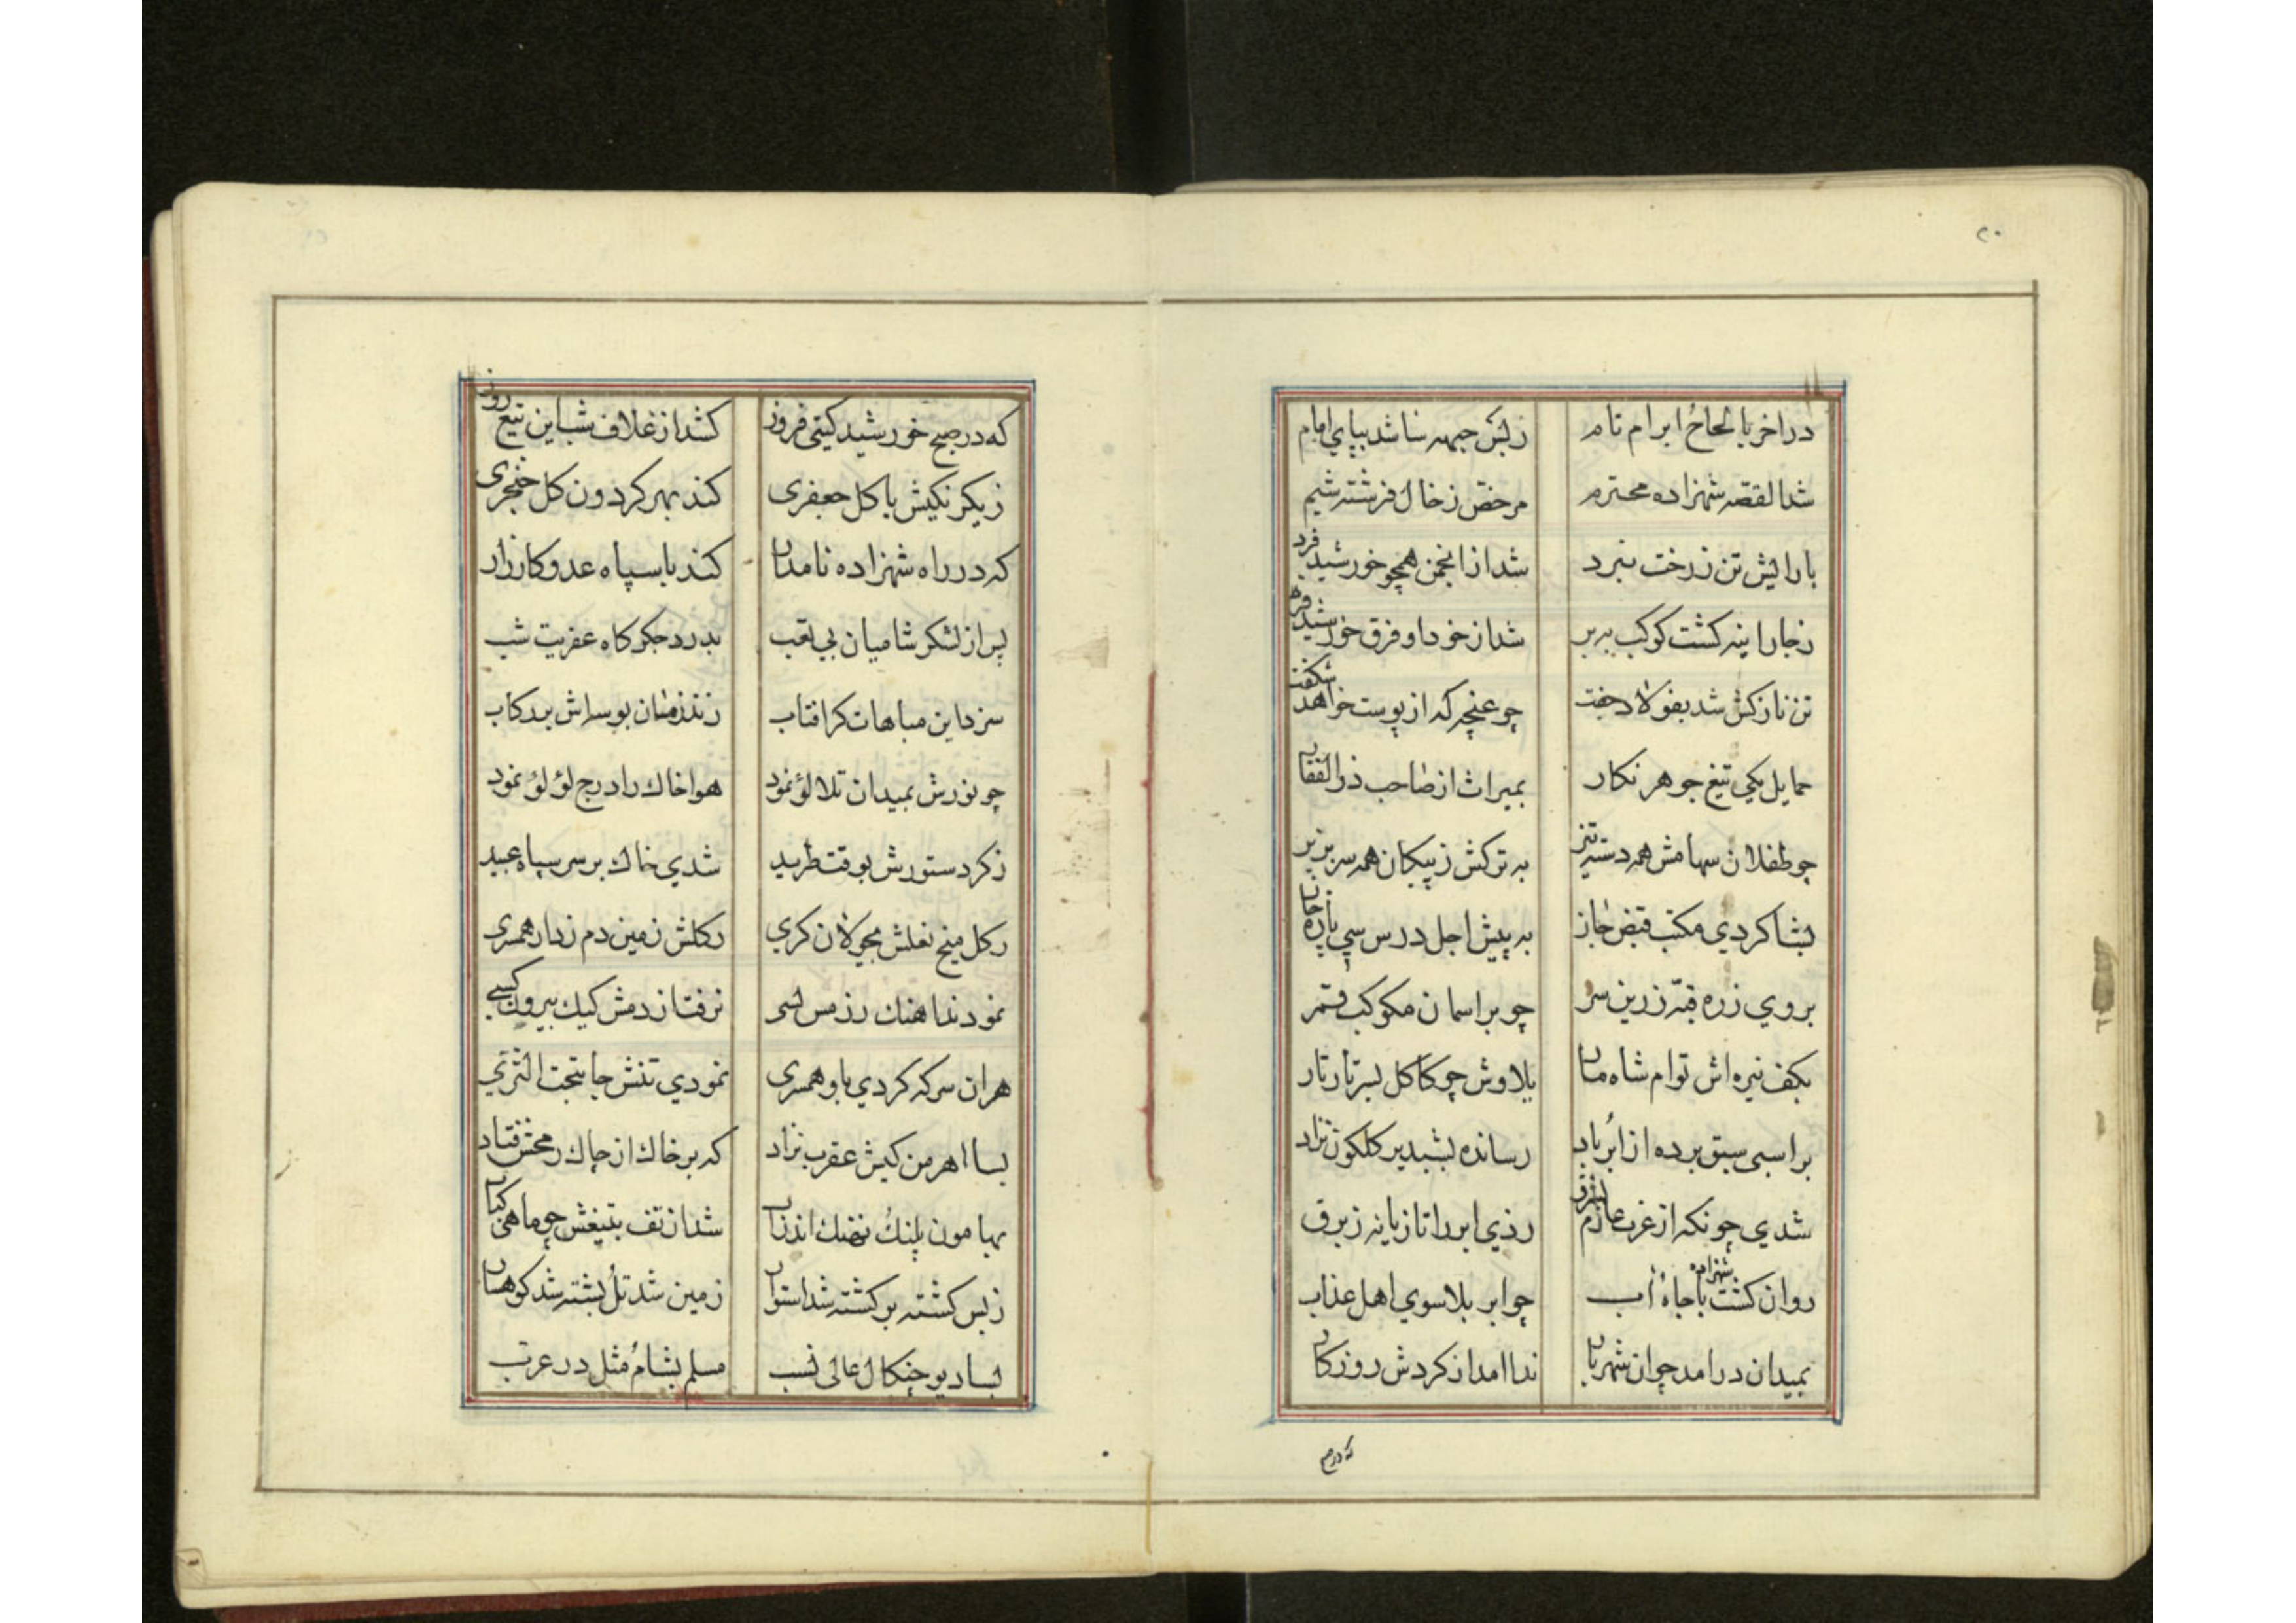 ۲۰
در اخر بالحاح ابرام تام زبس جبهه سا شد بپای امام
شد القصه شهزاده محترم مرخص ز خال فرشته شیم
بارایش تن ز رخت نبرد شد از انجمن همچو خورشید فرد
زجاراینه کشت کوکب به بر شد از خود او فرق خورشید فر
تن نازکش شد بفولاد جفت چو غنچه که از پوست خواهد شکفت
حمایل یکی تیغ جوهر نکار بمیراث از صاحب ذوالفقار
چو طفلان سهامش همه دسته تیز به ترکش ز پیکان همه سر بزیر
بشاکردی مکتب قبض جان به پیش اجل درس سی پاره خان
بروی زره قبه زرین سر چو بر اسمان مکوکب قمر
بکف نیزه اش توام شاه مار بلاوش چو کاکل بسر تار تار
بر اسبی سبق برده از ابر باد رسانده بشبدیز کلکون نژاد
شدی چونکه از غرب عازم بشرق زدی ابر را تازیانه ز برق
روان کشت شهزاده با جاه اب چو ابر بلا سوی اهل عذاب
بمیدان درامد چو ان شهریار ندا امد از کردش روزکار
که در صبح
که در صبح خورشید کیتی فروز کشد از غلاف شب این تیغ روز
ز یکرنکیش با کل جعفری کند بهر کردون کل خنجری
که در راه شهزاده نامدار کند با سپاه عدو کارزار
پس از لشکر شامیان بی تعب بدرد جکرکاه عفریت شب
سزد این مباهات کر افتاب زند زمان بوسه اش بر رکاب
چو نورش بمیدان تلالؤ نمود هوا خاک را درج لؤلؤ نمود
ز کرد ستورش بوقت طرید شدی خاک بر سر سپاه عبید
ز کل میخ نعلش بجولان کری زکلش زمین دم زدار همسری
نمودند اهنک رزمش بسی نرفت از دمش کیک بیرون کسی
هران سر که کردی باو همسری نمودی تنش جا بتحت الثری
بسا اهرمن کیش عقرب نژاد که بر خاک از چاک رمحش فتاد
بهامون پلنک نهنک اندران شد از تف تیغش چو ماهی کباب
زبس کشته بر کشته شد استوار زمین شد تل پشته شد کوهسار
بسا دیو چنکال عالی نسب مسلم بشام مثل در عرب